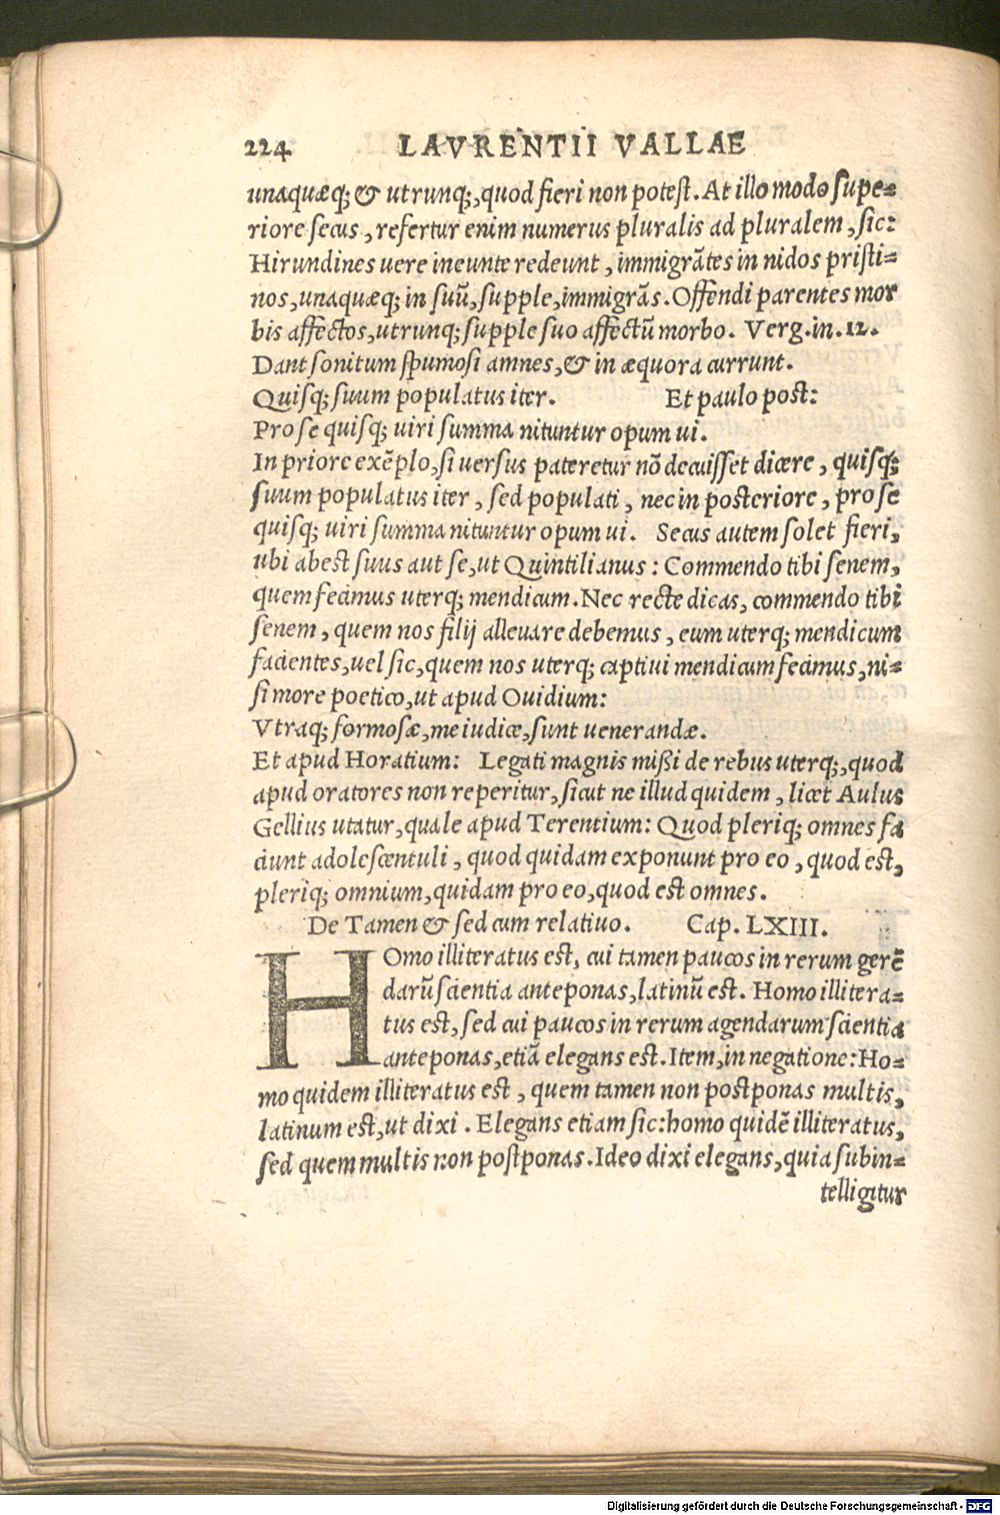 224 LAVRENTII VALLAE
unaquæq; & utrunq;, quod fieri non potest. At illo modo supe-
riore secus, refertur enim numerus pluralis ad pluralem, sic:
Hirundines uere ineunte redeunt, immigrātes in nidos pristi-
nos, unaquæq; in suū, supple, immigrās. Offendi parentes mor
bis affectos, utrunq; supple suo affectū morbo. Verg. in. 12.
Dant sonitum spumosi amnes, & in æquora currunt.
Quisq; suum populatus iter. Et paulo post:
Pro se quisq; uiri summa nituntur opum ui.
In priore exēplo, si uersus pateretur nō decuisset dicere, quisq;
suum populatus iter, sed populati, nec in posteriore, pro se
quisq; uiri summa nituntur opum ui. Secus autem solet fieri,
ubi abest suus aut se, ut Quintilianus: Commendo tibi senem,
quem fecimus uterq; mendicum. Nec recte dicas, commendo tibi
senem, quem nos filij alleuare debemus, eum uterq; mendicum
facientes, uel sic, quem nos uterq; captiui mendicum fecimus, ni-
si more poetico, ut apud Ouidium:
Vtraq; formosæ, me iudice, sunt uenerandæ.
Et apud Horatium: Legati magnis mißi de rebus uterq;, quod
apud oratores non reperitur, sicut ne illud quidem, licet Aulus
Gellius utatur, quale apud Terentium: Quod pleriq; omnes fa
ciunt adolescentuli, quod quidam exponunt pro eo, quod est,
pleriq; omnium, quidam pro eo, quod est omnes.
De Tamen & sed cum relatiuo. Cap. LXIII.
HOmo illiteratus est, cui tamen paucos in rerum gerē
darū scientia anteponas, latinū est. Homo illitera-
tus est, sed cui paucos in rerum agendarum scientia
anteponas, etiā elegans est. Item, in negatione: Ho-
mo quidem illiteratus est, quem tamen non postponas multis,
latinum est, ut dixi. Elegans etiam sic: homo quidē illiteratus,
sed quem multis non postponas. Ideo dixi elegans, quia subin-
telligitur
Digitalisierung gefördert durch die Deutsche Forschungsgemeinschaft - DFG